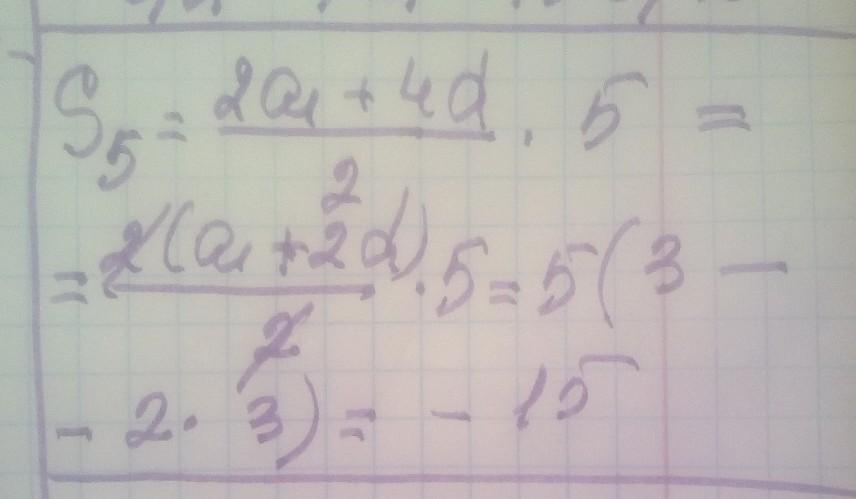 S₅ = (2a₁ + 4d)/2 · 5 =
= 2(a₁ + 2d)/2 · 5 = 5(3 −
− 2 · 3) = − 15